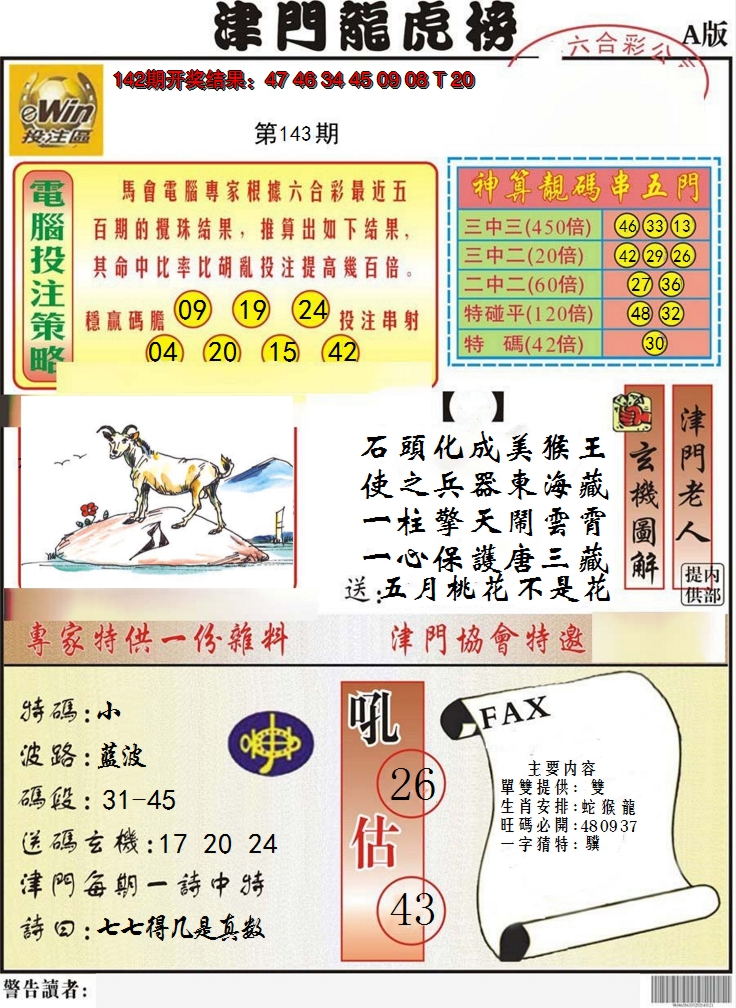 津門龍虎榜
A版
六合彩公
142期开奖结果：47 46 34 45 09 08 T 20
eWin
投注區
第143期
電腦投注策略
馬會電腦專家根據六合彩最近五
百期的攪珠结果，推算出如下结果，
其命中比率比胡亂投注提高幾百倍。
穩贏碼膽 09 19 24 投注串射
04 20 15 42
神算靚碼串五門
三中三(450倍) 46 33 13
三中二(20倍) 42 29 26
二中二(60倍) 27 36
特碰平(120倍) 48 32
特 碼(42倍) 30
【 】
石頭化成美猴王
使之兵器東海藏
一柱擎天鬧雲霄
一心保護唐三藏
送:五月桃花不是花
玄機圖解
津門老人
内部提供
專家特供一份雜料
津門協會特邀
特碼:小
波路:藍波
碼段:31-45
送碼玄機:17 20 24
津門每期一詩中特
詩曰:七七得几是真数
吼
26
估
43
FAX
主要内容
單雙提供: 雙
生肖安排:蛇猴龍
旺碼必開:480937
一字猜特: 驥
警告讀者: